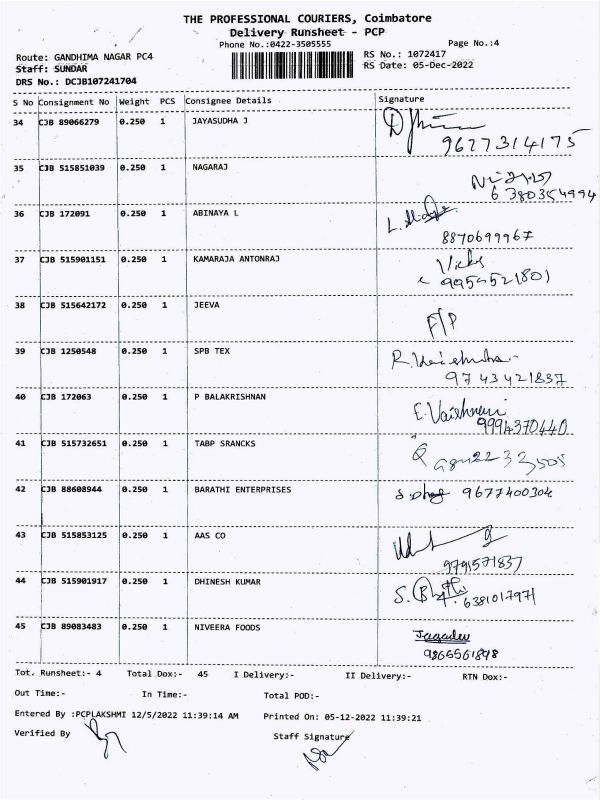 THE PROFESSIONAL COURIERS, Coimbatore
Delivery Runsheet - PCP
Phone No.:0422-3505555 Page No.:4
Route: GANDHIMA NAGAR PC4 RS No.: 1072417
Staff: SUNDAR RS Date: 05-Dec-2022
DRS No.: DCJB107241704
S No Consignment No Weight PCS Consignee Details Signature
34 CJB 89066279 0.250 1 JAYASUDHA J
9627314175
35 CJB 515851039 0.250 1 NAGARAJ
6380354994
36 CJB 172091 0.250 1 ABINAYA L
8870699967
37 CJB 515901151 0.250 1 KAMARAJA ANTONRAJ Vicky
9959521801
38 CJB 515642172 0.250 1 JEEVA
F/P
39 CJB 1250548 0.250 1 SPB TEX
9743421837
40 CJB 172063 0.250 1 P BALAKRISHNAN E. Vaishnavi
9994370440
41 CJB 515732651 0.250 1 TABP SRANCKS
42 CJB 88608944 0.250 1 BARATHI ENTERPRISES 9677400304
43 CJB 515853125 0.250 1 AAS CO
9791571837
44 CJB 515901917 0.250 1 DHINESH KUMAR
6381017971
45 CJB 89083483 0.250 1 NIVEERA FOODS
9865561898
Tot. Runsheet:- 4 Total Dox:- 45 I Delivery:- II Delivery:- RTN Dox:-
Out Time:- In Time:- Total POD:-
Entered By :PCPLAKSHMI 12/5/2022 11:39:14 AM Printed On: 05-12-2022 11:39:21
Verified By Staff Signature